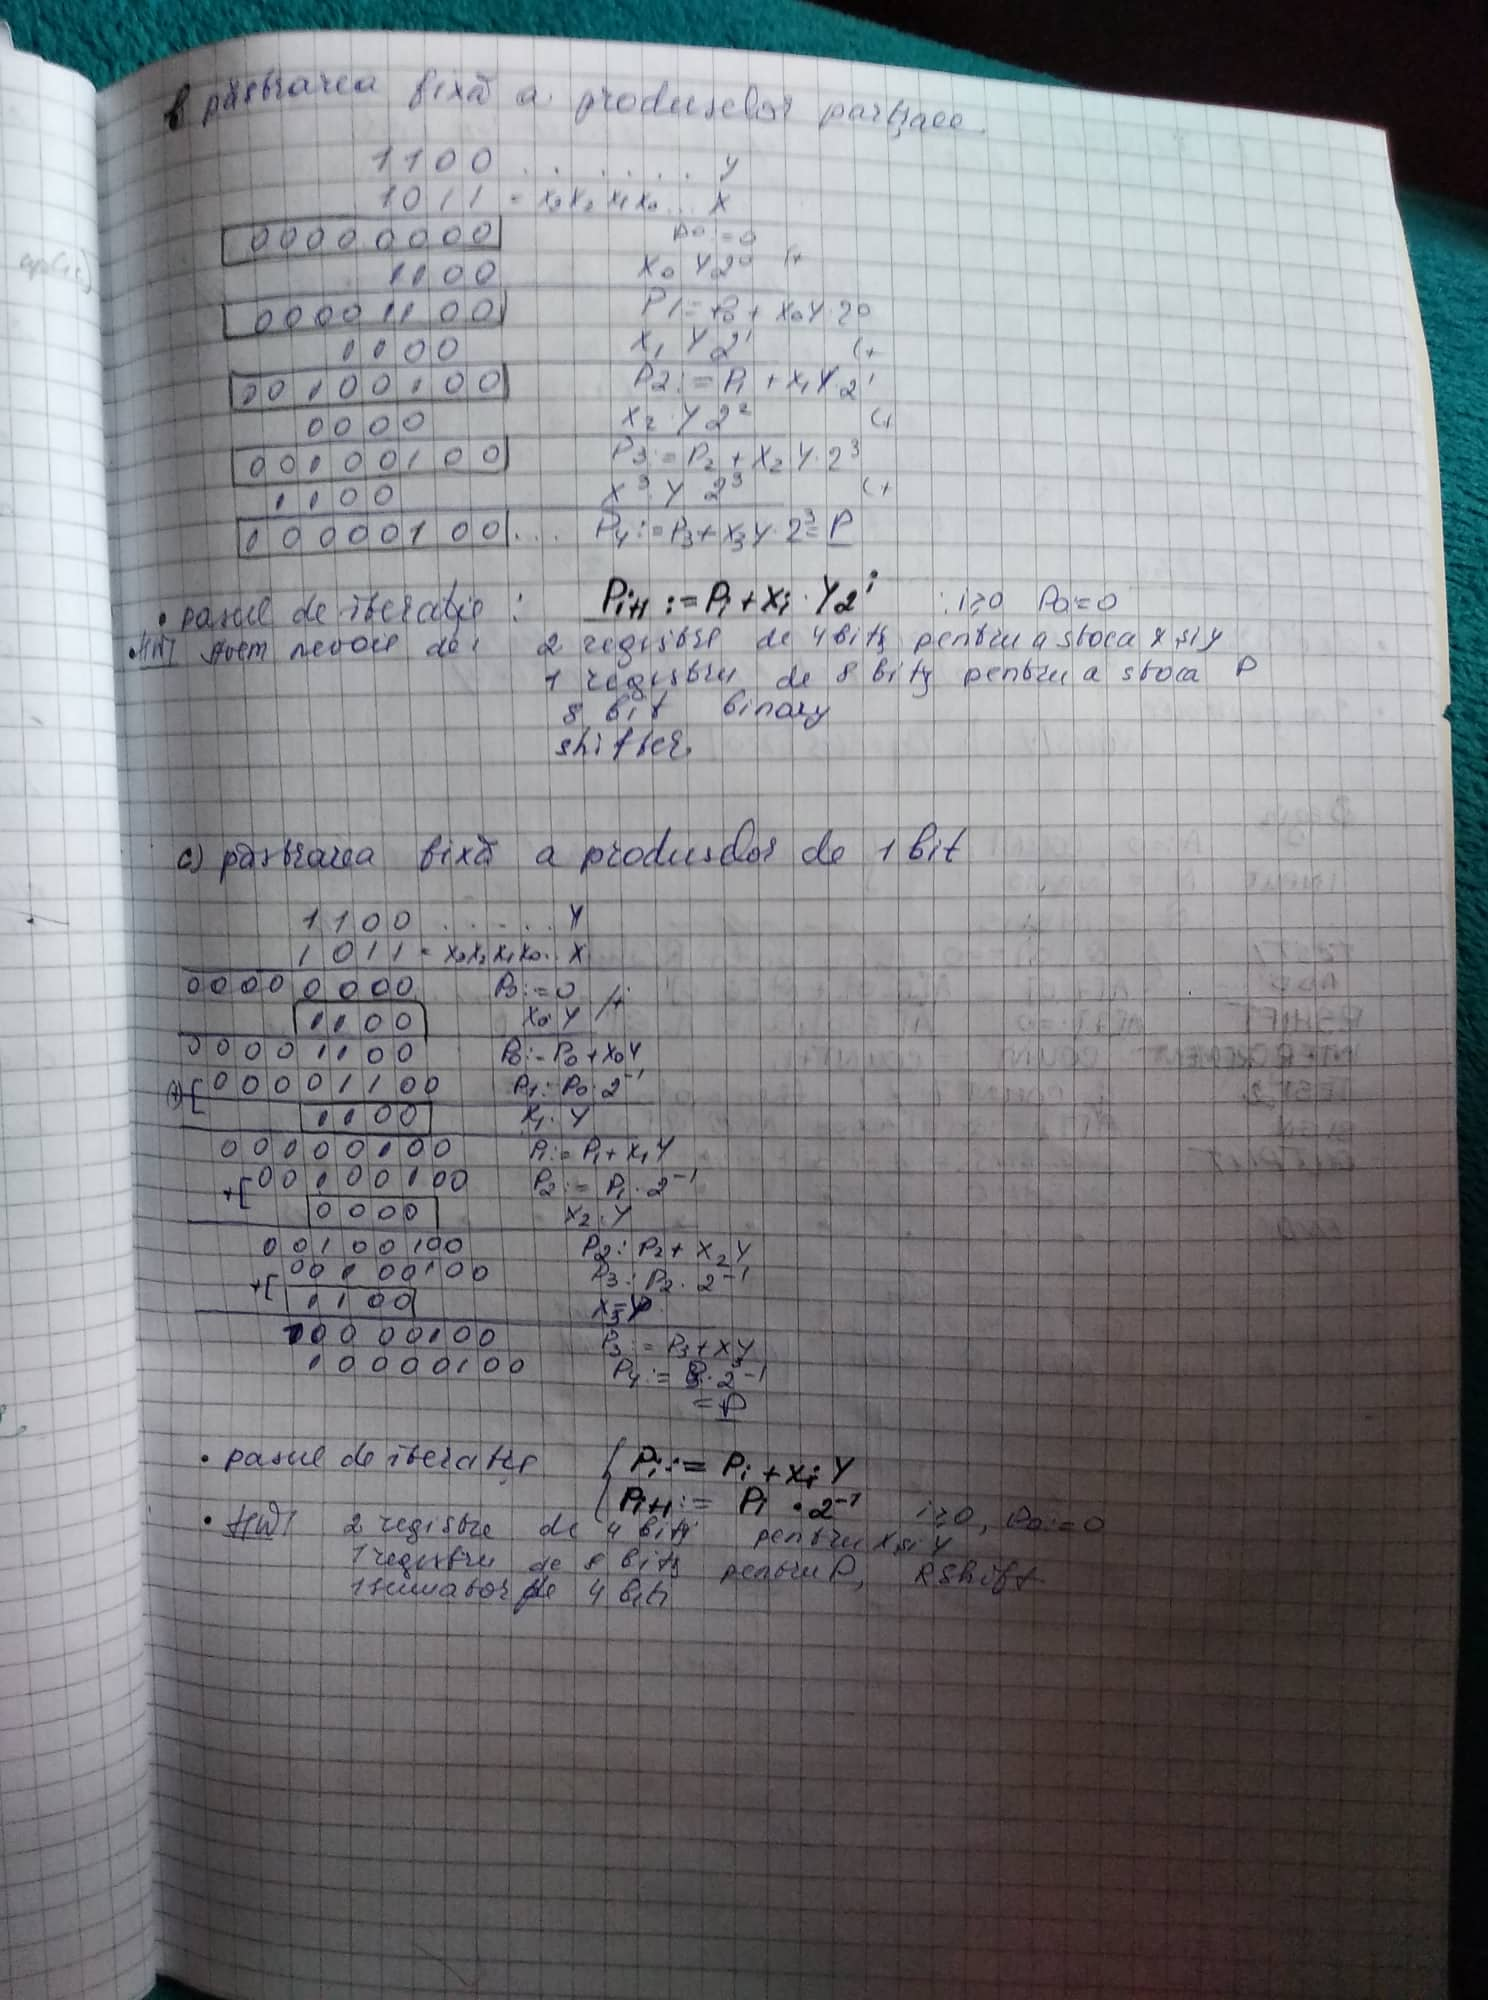 b păstrarea fixă a produselor parțiale.
1100 . . . . . . . Y
1011 = x3x2x1x0 ... X
00000000 P0:=0
1100 X0 Y20 (+
00001100 P1=P0+X0Y·20
1100 X1 Y2^1 (+
00100100 P2:=P1+X1Y·2^1
0000 X2·Y2^2 (+
00100100 P3:=P2+X2Y·2^3
1100 X^3·Y 2^3 (+
00000100 ... P4:=P3+X3Y·2^3=P
• pasul de iterație : Pi+1:=Pi+Xi·Y2^i i≥0 P0=0
• HW Avem nevoie de: 2 registre de 4 biți pentru a stoca x și y
1 registru de 8 biți pentru a stoca P
8 bit binary
shifter.
c) păstrarea fixă a produselor de 1 bit
1100 . . . . . . Y
1011 = x3x2x1x0 .. X
0000 0000 P0:=0
1100 X0 Y /+
00001100 P0:=P0+X0Y
(+)[ 000001100 P1:P0·2^-1
1100 X1·Y
00000100 P1:=P1+X1Y
+[ 00100100 P2:=P1·2^-1
0000 X2·Y
00100100 P2:P2+X2Y
00100100 P3:P2·2^-1
+[ 1100
10000100 P3:=P3+XY
10000100 P4:= P3·2^-1
=P
• pasul de iterație { Pi:= Pi+XiY
{ Pi+1:= Pi·2^-1 i≥0, P0:=0
• HW 2 registre de 4 biți pentru X și Y
1 registru de 8 biți pentru P, RShift
1 sumator de 4 biți